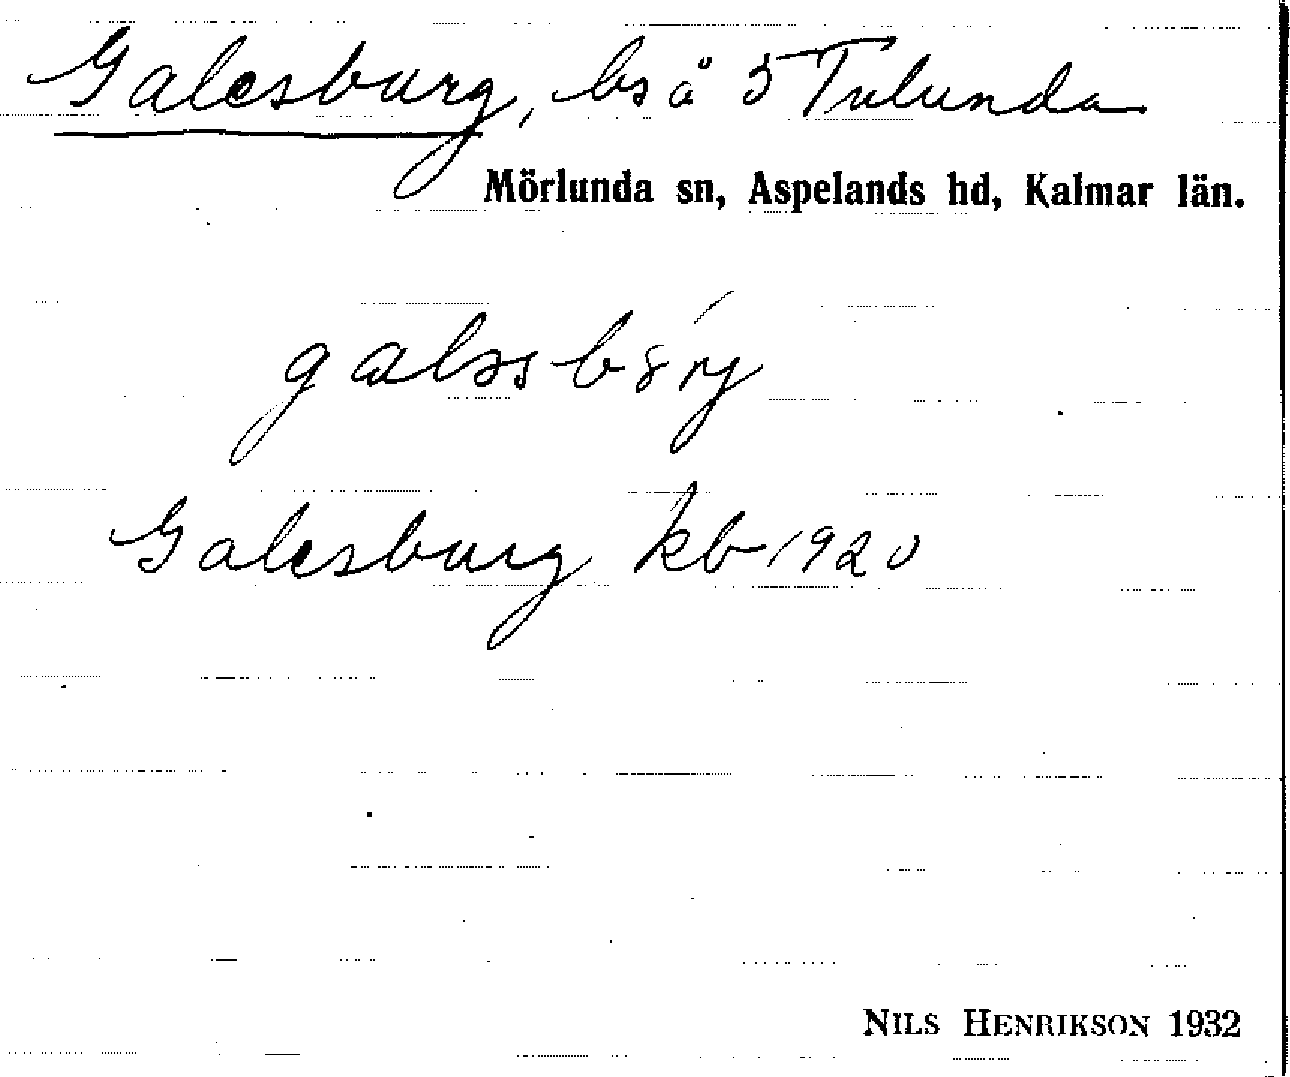 Galesburg, bs å 5 Tulunda
Mörlunda sn, Aspelands hd, Kalmar län.
Galesburg kb 1920
NILS HENRIKSON 1932